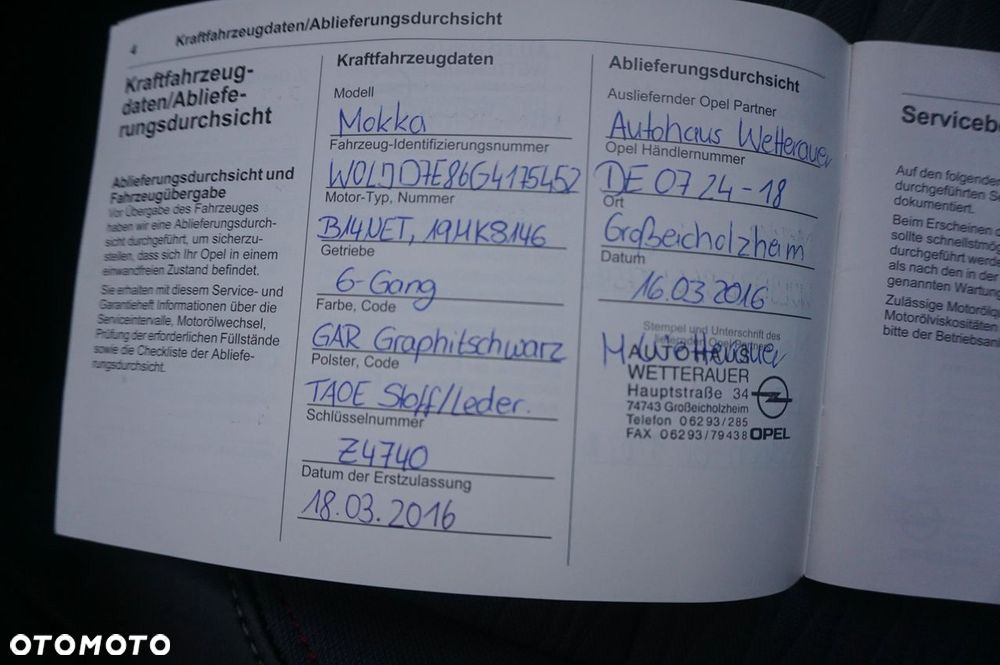 4 Kraftfahrzeugdaten/Ablieferungsdurchsicht
Kraftfahrzeug-
daten/Abliefe-
rungsdurchsicht
Ablieferungsdurchsicht und
Fahrzeugübergabe
Vor Übergabe des Fahrzeuges
haben wir eine Ablieferungsdurch-
sicht durchgeführt, um sicherzu-
stellen, dass sich Ihr Opel in einem
einwandfreien Zustand befindet.
Sie erhalten mit diesem Service- und
Garantieheft Informationen über die
Serviceintervalle, Motorölwechsel,
Prüfung der erforderlichen Füllstände
sowie die Checkliste der Abliefe-
rungsdurchsicht.
Kraftfahrzeugdaten
Modell
Mokka
Fahrzeug-Identifizierungsnummer
W0LJD7E86G4175452
Motor-Typ, Nummer
B14NET, 19MK8146
Getriebe
6-Gang
Farbe, Code
GAR Graphitschwarz
Polster, Code
TAOE Stoff/Leder.
Schlüsselnummer
Z4740
Datum der Erstzulassung
18.03.2016
Ablieferungsdurchsicht
Ausliefernder Opel Partner
Autohaus Wetterauer
Opel Händlernummer
DE 07 24-18
Ort
Großeicholzheim
Datum
16.03 2016
Stempel und Unterschrift des
AUTOHAUS
WETTERAUER
Hauptstraße 34
74743 Großeicholzheim
Telefon 06293/285
FAX 06293/79438 OPEL
Auf den folgenden
durchgeführten
dokumentiert.
Beim Erscheinen
sollte
durchgeführt
als nach den in der
genannten
Zulässige
Motorölviskositäten
bitte der
OTOMOTO